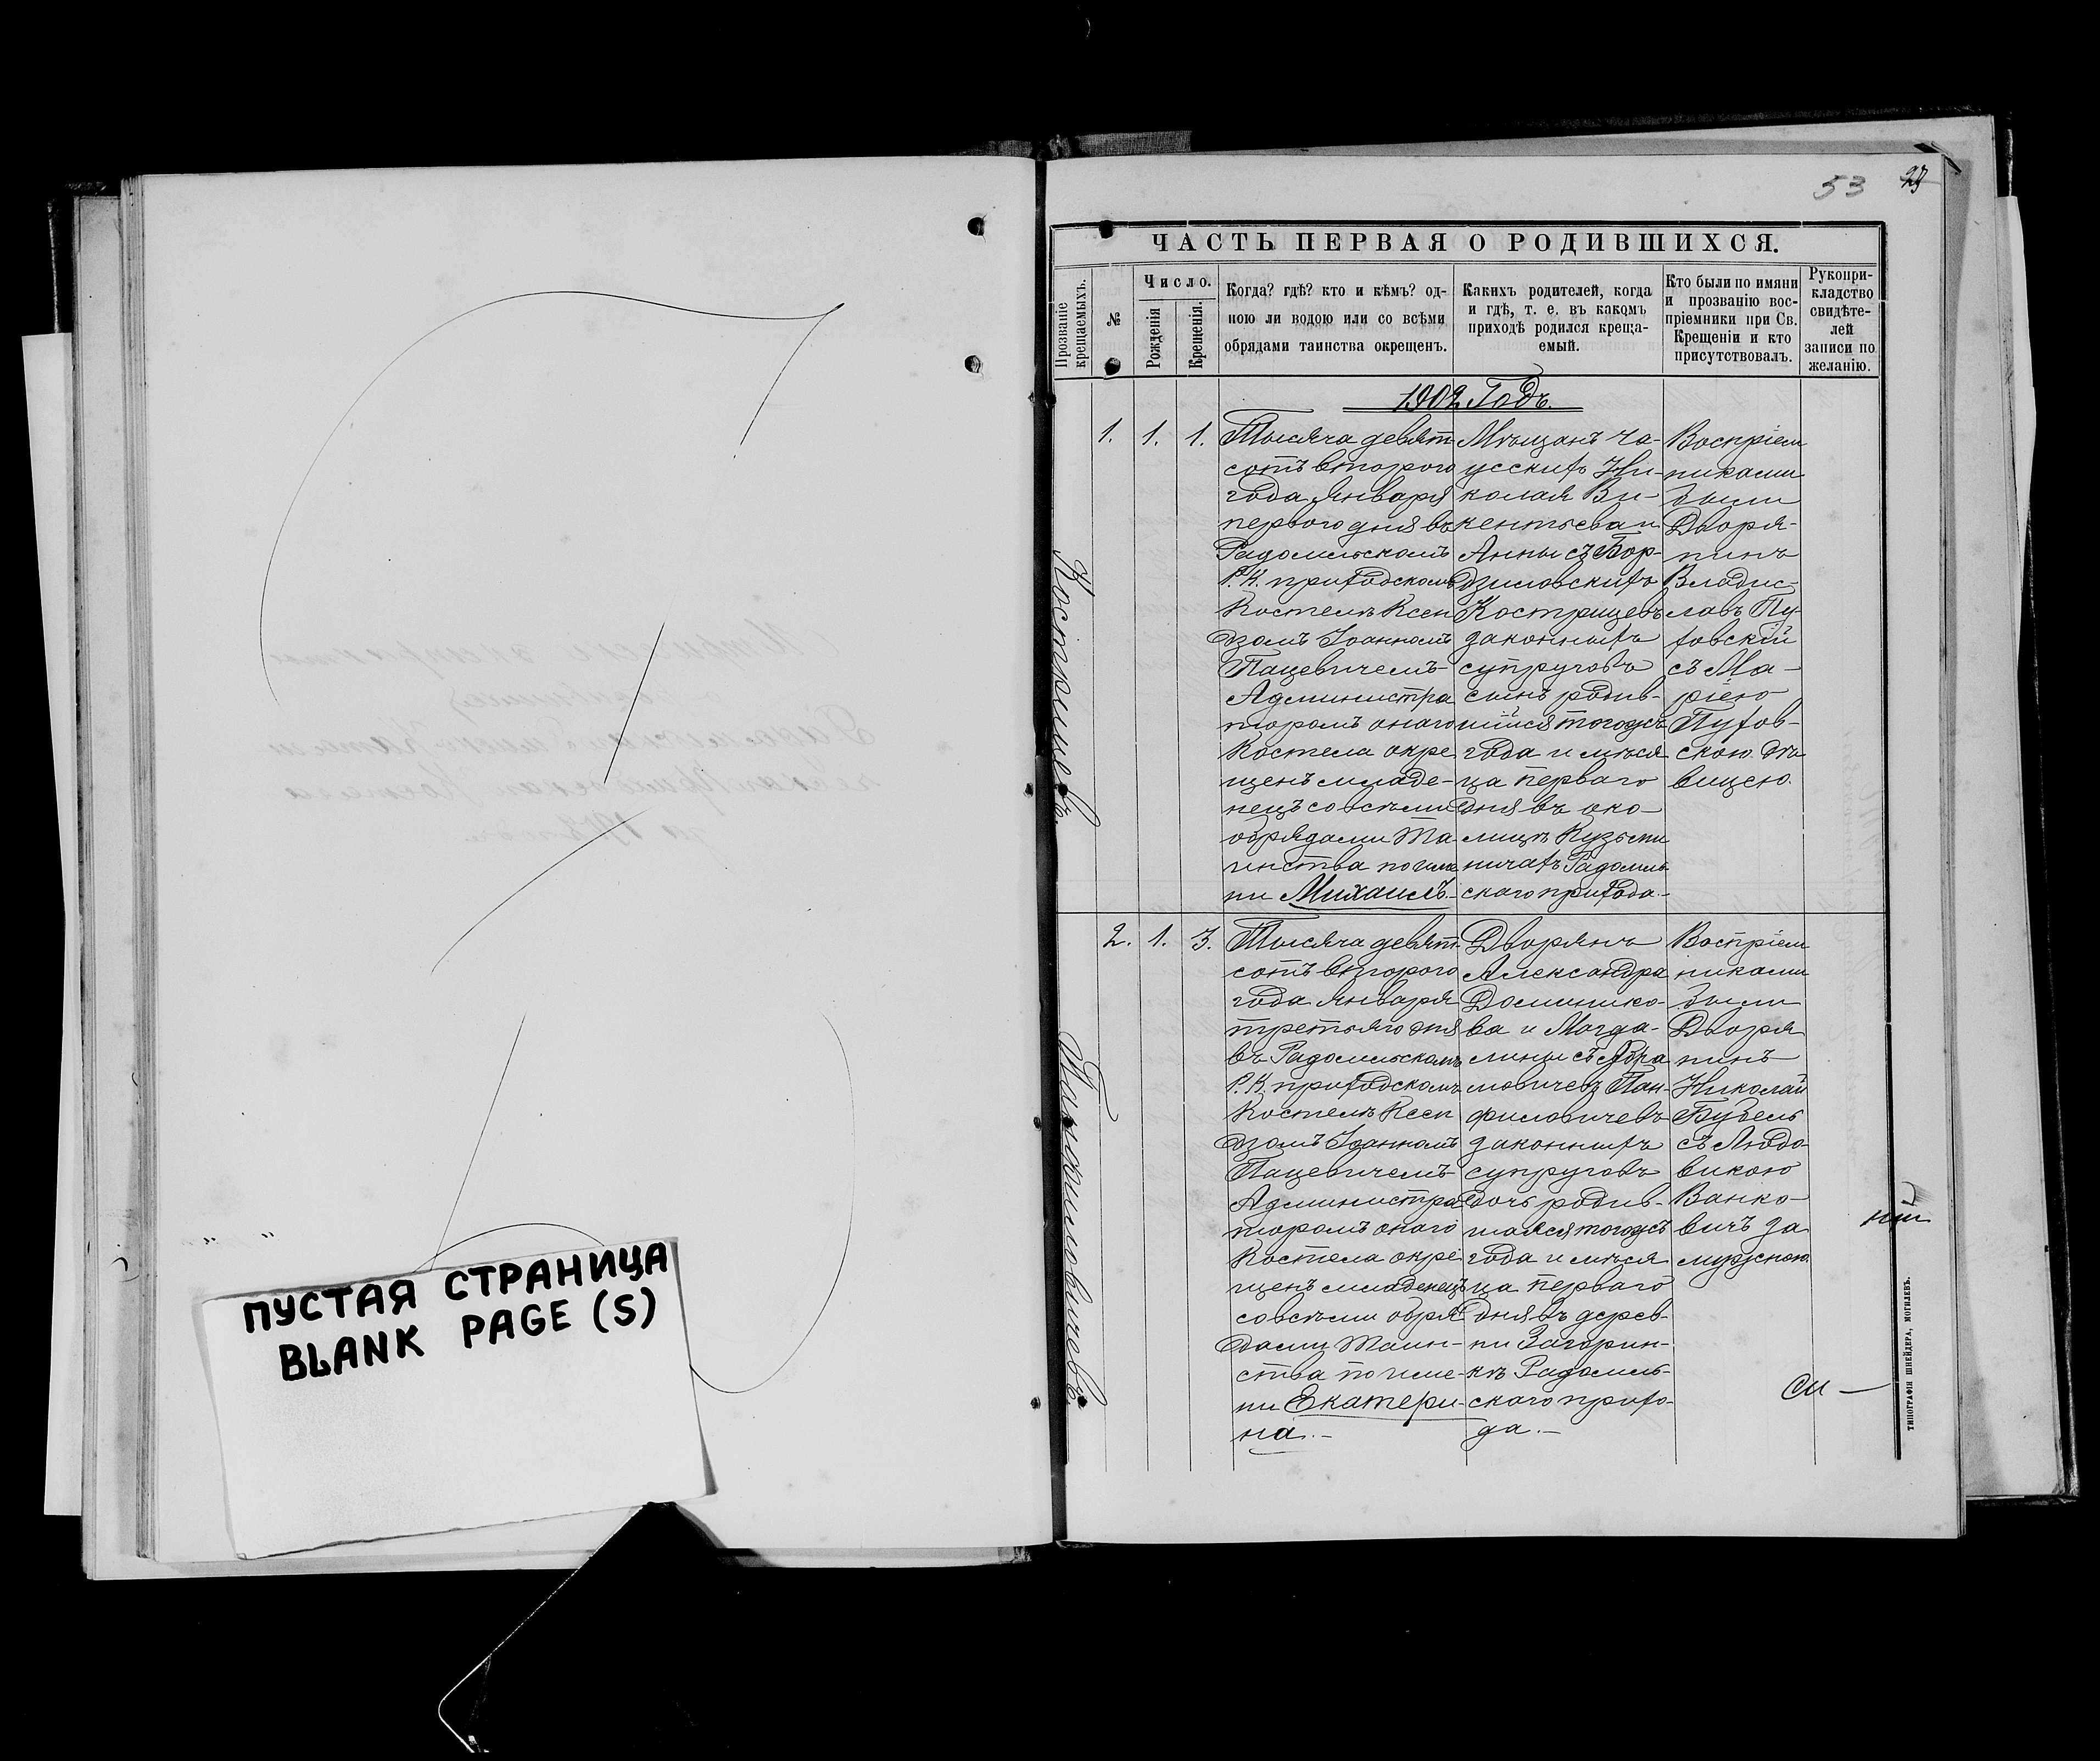 ПУСТАЯ СТРАНИЦА
BLANK PAGE (S)
53
ЧАСТЬ ПЕРВАЯ О РОДИВШИХСЯ.
Прозваніе
крещаемыхъ.
№
Число.
Рожденія
Крещенія.
Когда? гдѣ? кто и кѣмъ? од-
ною ли водою или со всѣми
обрядами таинства окрещенъ.
Какихъ родителей, когда
и гдѣ, т. е. въ какомъ
приходѣ родился креща-
емый.
Кто были по имяни
и прозванію вос-
пріемники при Св.
Крещеніи и кто
присутствовалъ.
Рукопри-
кладство
свидѣте-
лей
записи по
желанію.
1902 Годъ.
1.
1.
1.
Тысяча девят-
сотъ второго
года Января
первого дня въ
Радомльскомъ
Р. К. приходскомъ
Костелѣ Ксен
дзомъ Іоанномъ
Пацевичемъ
Администра
торомъ онаго
Костела окре
щенъ младе-
нецъ со всѣми
обрядами Та
инства по име
ни Михаилъ.-
Мѣщанъ Ча-
усскихъ Ни-
колая Ви-
кентьева и
Анны съ Бор-
дзиловскихъ
Кострицевъ
законныхъ
супруговъ
сынъ родив-
шійся тогожъ
года и мѣся
ца перваго
дня въ око-
лицѣ Кузьми
ничахъ Радомль
скаго прихода.-
Воспріем
никами
были
Дворя-
нинъ
Владис-
лавъ Пу-
ховскій
съ Ма-
ріею
Пухов-
скою дѣ
вицею.
2.
1.
3.
Тысяча девят-
сотъ второго
года Января
третьяго дня
въ Радомльскомъ
Р. К. приходскомъ
Костелѣ Ксен
дзомъ Іоанномъ
Пацевичемъ
Администра
торомъ онаго
Костела окре
щенъ младенецъ
со всѣми обря
дами Таин-
ства по име-
ни Екатери-
на.-
Дворянъ
Александра
Доминико-
ва и Магда-
лины съ Абра
мовичевъ Пан-
филовичевъ
законныхъ
супруговъ
дочь родив-
шаяся тогожъ
года и мѣся
ца перваго
дня въ дерев-
ни Загорин-
кѣ Радомль-
скаго прихо-
да.-
Воспріем
никами
были
Дворя
нинъ
Николай
Бубель
съ Людо
викою
Ванко-
вичъ за
мужнею.
Панфиловичевъ.
ТИПОГРАФІЯ ШНЕЙДЕРА, МОГИЛЕВЪ.